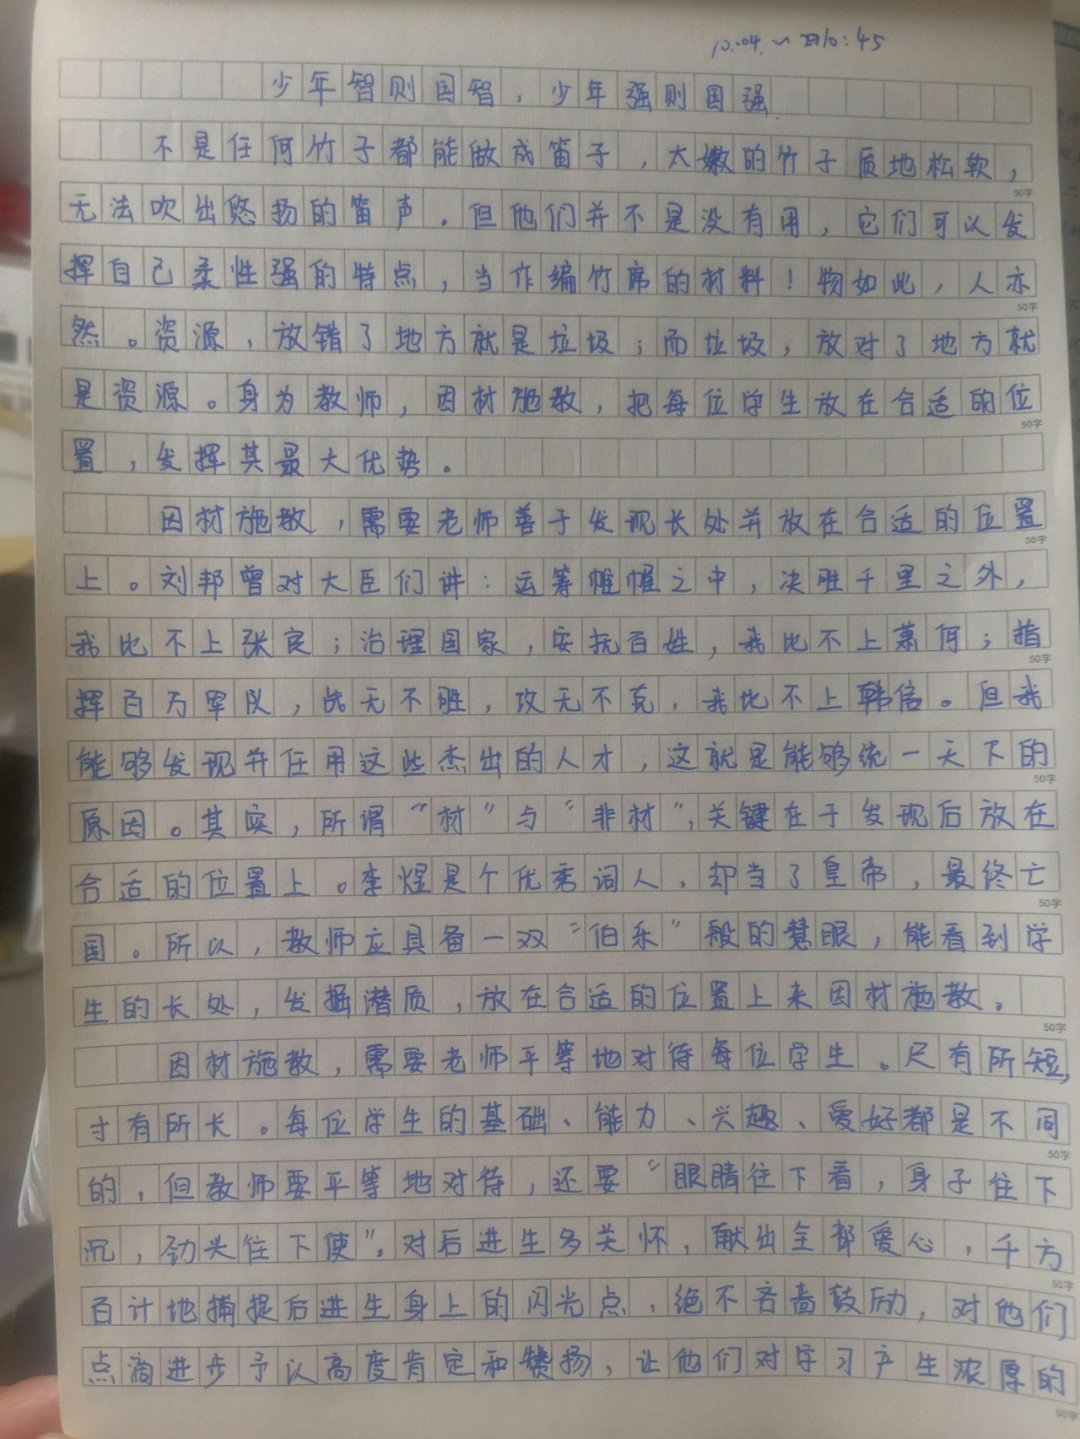 10:04 ~ 10:45
少年智则国智，少年强则国强
不是任何竹子都能做成笛子，太嫩的竹子质地松软，
50字
无法吹出悠扬的笛声。但他们并不是没有用，它们可以发
挥自己柔性强的特点，当作编竹席的材料！物如此，人亦
50字
然。资源，放错了地方就是垃圾；而垃圾，放对了地方就
是资源。身为教师，因材施教，把每位学生放在合适的位
50字
置，发挥其最大优势。
因材施教，需要老师善于发现长处并放在合适的位置
50字
上。刘邦曾对大臣们讲：运筹帷幄之中，决胜千里之外，
我比不上张良；治理国家，安抚百姓，我比不上萧何；指
50字
挥百万军队，战无不胜，攻无不克，我比不上韩信。但我
能够发现并任用这些杰出的人才，这就是能够统一天下的
50字
原因。其实，所谓“材”与“非材”，关键在于发现后放在
合适的位置上。李煜是个优秀词人，却当了皇帝，最终亡
50字
国。所以，教师应具备一双“伯乐”般的慧眼，能看到学
生的长处，发掘潜质，放在合适的位置上来因材施教。
50字
因材施教，需要老师平等地对待每位学生。尺有所短，
寸有所长。每位学生的基础、能力、兴趣、爱好都是不同
50字
的，但教师要平等地对待，还要“眼睛往下看，身子往下
沉，劲头往下使”。对后进生多关怀，献出全部爱心，千方
50字
百计地捕捉后进生身上的闪光点，绝不吝啬鼓励，对他们
点滴进步予以高度肯定和赞扬，让他们对学习产生浓厚的
50字